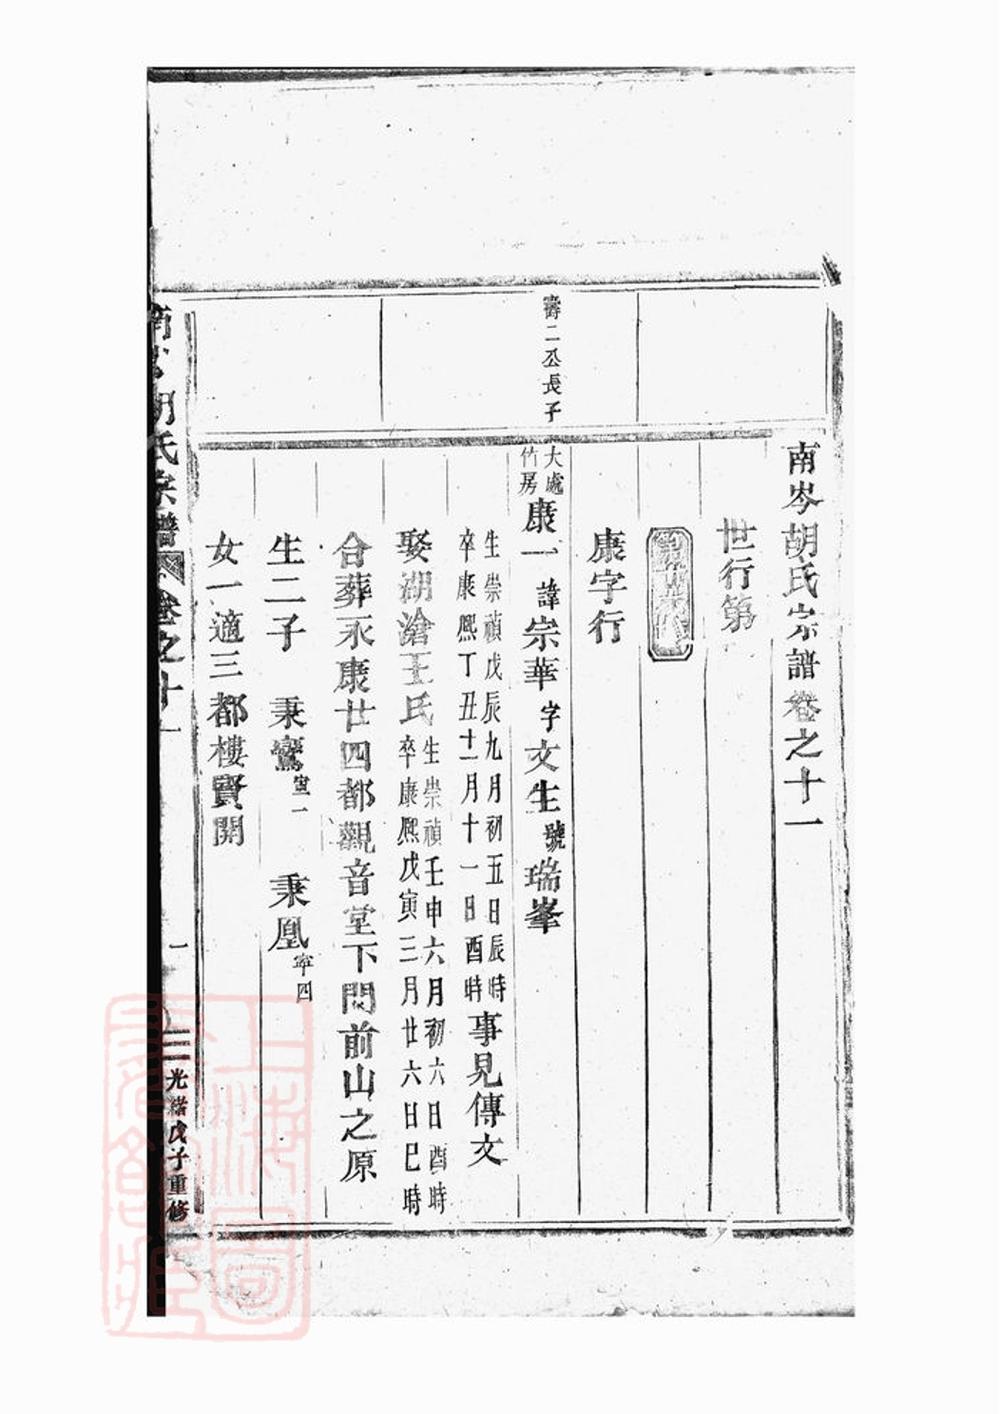 南岑胡氏宗譜卷之十一
世行第
康字行
壽二公長子
大處
竹房
康一諱宗華字文生號瑞峯
生崇禎戊辰九月初五日辰時
卒康熙丁丑十一月十一日酉時
事見傳文
娶湖滄王氏
生崇禎壬申六月初六日酉時
卒康熙戊寅三月廿六日巳時
合葬永康廿四都觀音堂下問前山之原
生二子 秉鸞 寍一 秉鳳 寍四
女一適三都樓賓開
胡氏宗譜 卷之十一
一
光緒戊子重修
上海圖書館藏